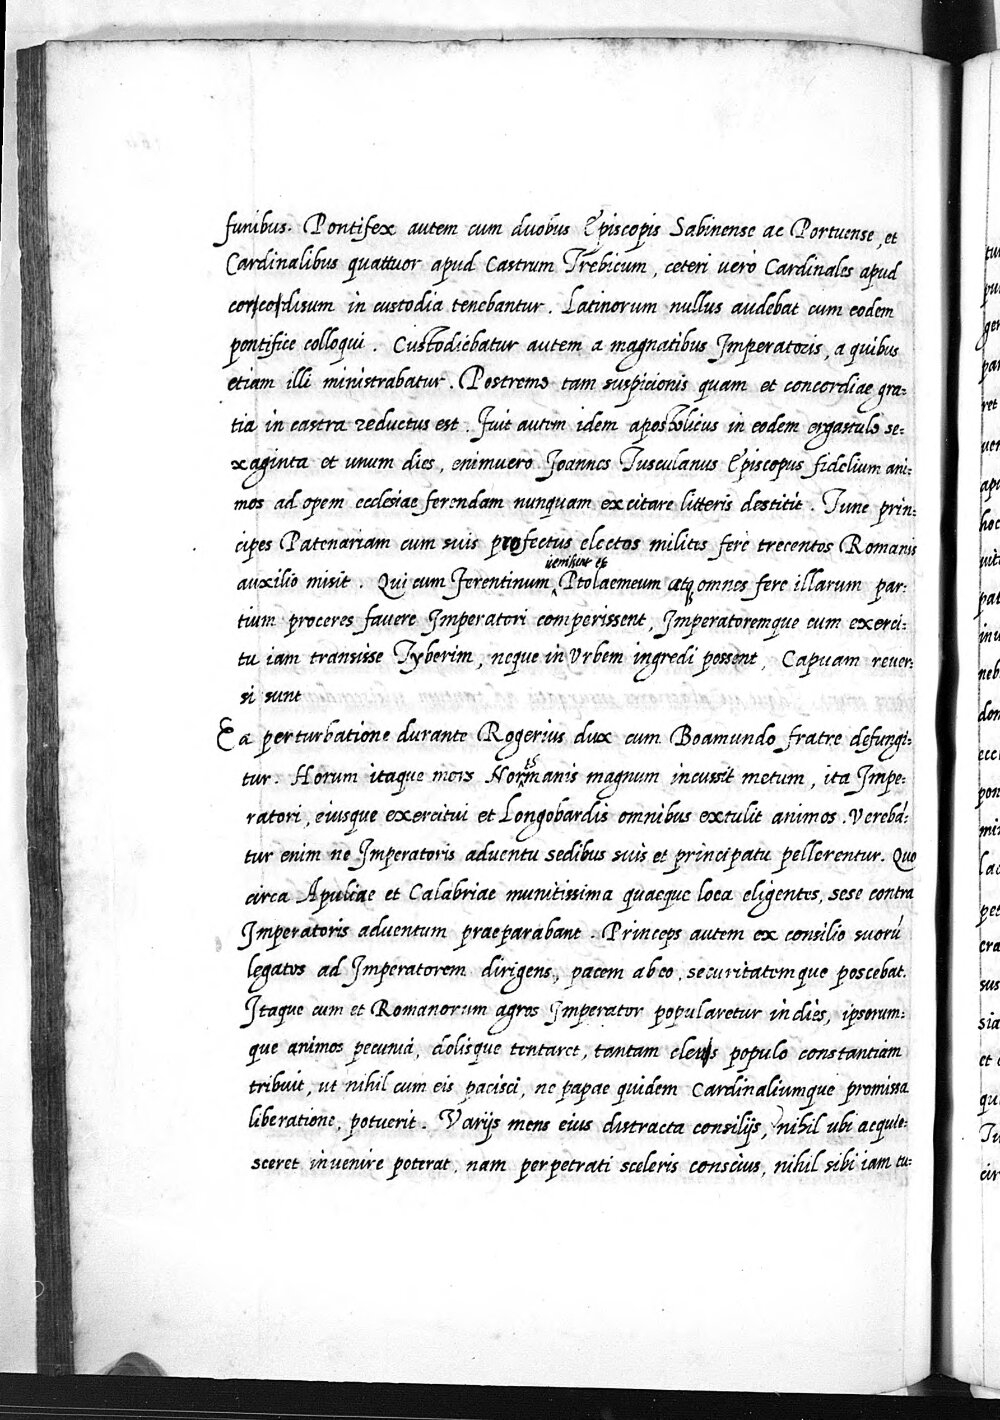 funibus. Pontifex autem cum duobus Episcopis Sabinense ac Portuense, et
Cardinalibus quattuor apud Castrum Trebicum, ceteri vero Cardinales apud
corcodisum in custodia tenebantur. Latinorum nullus audebat cum eodem
pontifice colloqui. Custodiebatur autem a magnatibus Imperatoris, a quibus
etiam illi ministrabatur. Postremo tam suspicionis quam et concordiae gra-
tia in castra reductus est. Fuit autem idem apostolicus in eodem ergastulo se-
xaginta et unum dies, enimuero Joannes Tusculanus Episcopus fidelium ani-
mos ad opem ecclesiae ferendam nunquam excitare litteris destitit. Tunc prin-
cipes Patenariam cum suis profectus electos milites fere trecentos Romanis
auxilio misit. Qui cum Ferentinum uenissent et Ptolaemeum atq omnes fere illarum par-
tium proceres favere Imperatori comperissent, Imperatoremque cum exerci-
tu iam transisse Tyberim, neque in Vrbem ingredi possent, Capuam rever-
si sunt
Ea perturbatione durante Rogerius dux cum Boamundo fratre defungi-
tur. Horum itaque mors Normanis magnum incussit metum, ita Impe-
ratori, eiusque exercitui et Longobardis omnibus extulit animos. Verebā-
tur enim ne Imperatoris adventu sedibus suis et principatu pellerentur. Quo
circa Apuliae et Calabriae munitissima quaeque loca eligentes, sese contra
Imperatoris adventum praeparabant. Princeps autem ex consilio suorū
legatos ad Imperatorem dirigens, pacem ab eo, securitatemque poscebat.
Itaque cum et Romanorum agros Imperator popularetur in dies, ipsorum-
que animos pecunia, dolisque tentaret, tantam populo constantiam
tribuit, ut nihil cum eis pacisci, ne papae quidem Cardinaliumque promissa
liberatione, potuerit. Varijs mens eius distracta consilijs, nihil ubi acquie-
sceret invenire poterat, nam perpetrati sceleris conscius, nihil sibi iam tu-